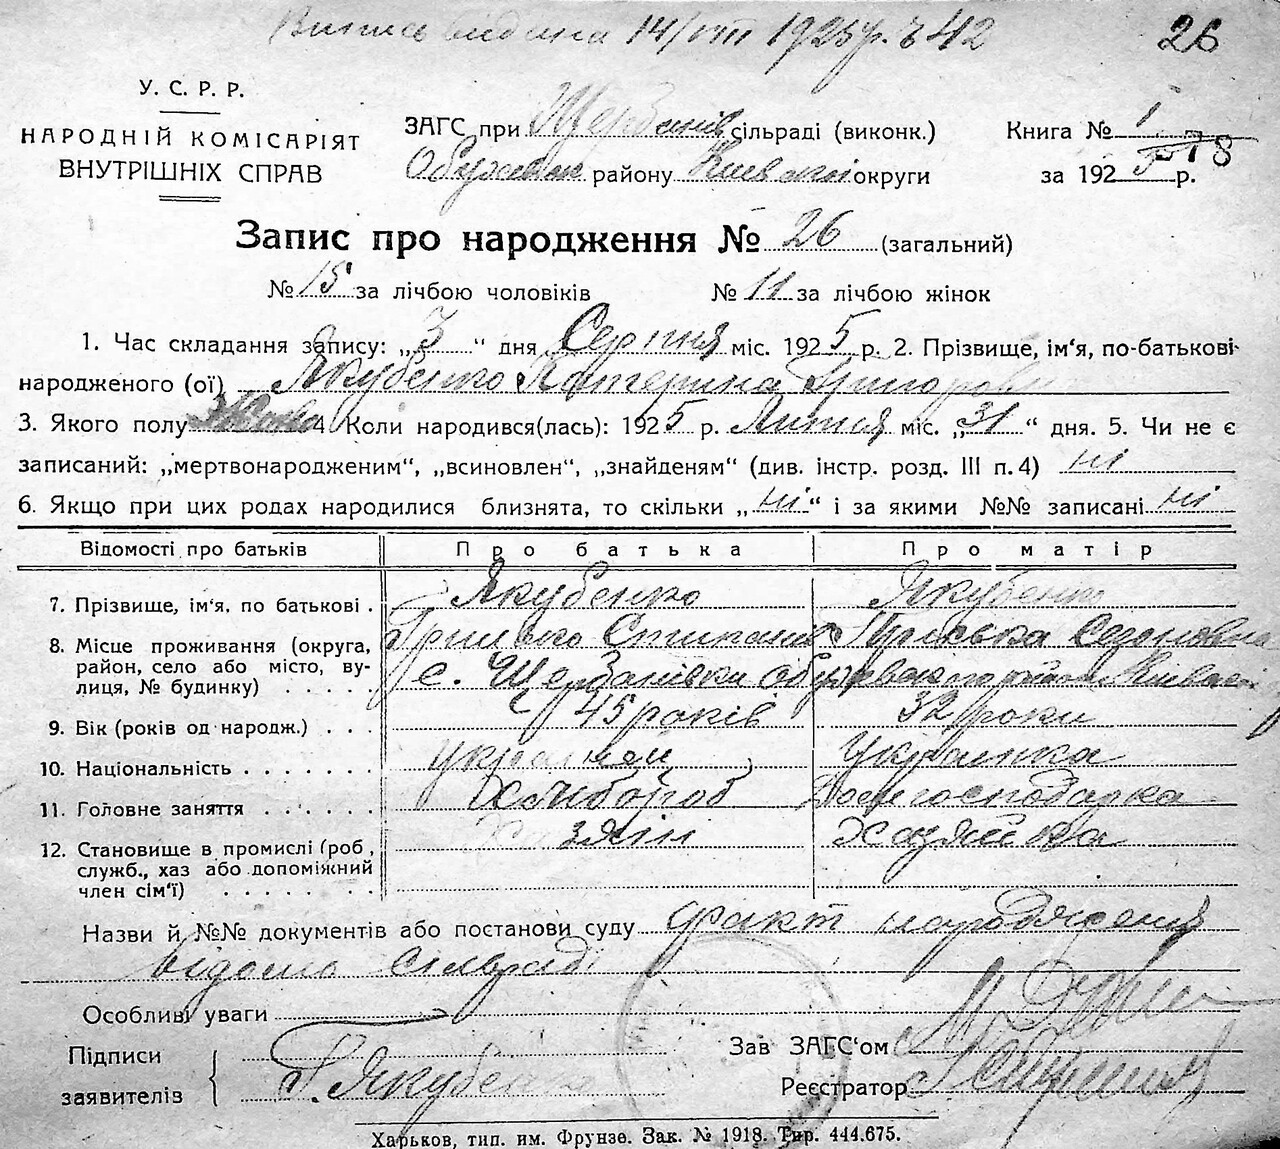 Випись видана 14/VIII 1925 р. № 42
26
У. С. Р. Р.
НАРОДНІЙ КОМІСАРІЯТ
ВНУТРІШНІХ СПРАВ
ЗАГС при Щербанів сільраді (виконк.)
района Київської округи
Книга № 1
78
за 1925 р.
Запис про народження № 26 (загальний)
№ 15 за лічбою чоловіків № 11 за лічбою жінок
1. Час складання запису: „ 3 “ дня Серпня міс. 1925 р. 2. Прізвище, ім'я, по-батькові
народженого (ої) Якубенко Катерина Григоровн
3. Якого полу 4. Коли народився(лась): 1925 р. Липня міс. „31“ дня. 5. Чи не є
записаний: „мертвонародженим“, „всиновлен“, „знайденям“ (див. інстр. розд. III п. 4) ні
6. Якщо при цих родах народилися близнята, то скільки „ні“ і за якими №№ записані ні
Відомості про батьків Про батька Про матір
7. Прізвище, ім'я, по батькові . Якубенко Якубенко
8. Місце проживання (округа, район, село або місто, вулиця, № будинку) . . . . . с. Щербанівка
9. Вік (років од народж.) . . . 45 років 32 роки
10. Національність . . . . . . . українец Українка
11. Головне заняття . . . . . . Хлібороб Домогосподарка
12. Становище в промислі (роб., служб., хаз або допоміжний член сім'ї) . . . . . . Хазяїн Хазяйка
Назви й №№ документів або постанови суду факт народження
відомо сільраді
Особливі уваги
Підписи
заявителів
Г. Якубенко
Зав ЗАГС'ом
Реєстратор
Харьков, тип. им. Фрунзе. Зак. № 1918. Тир. 444.675.